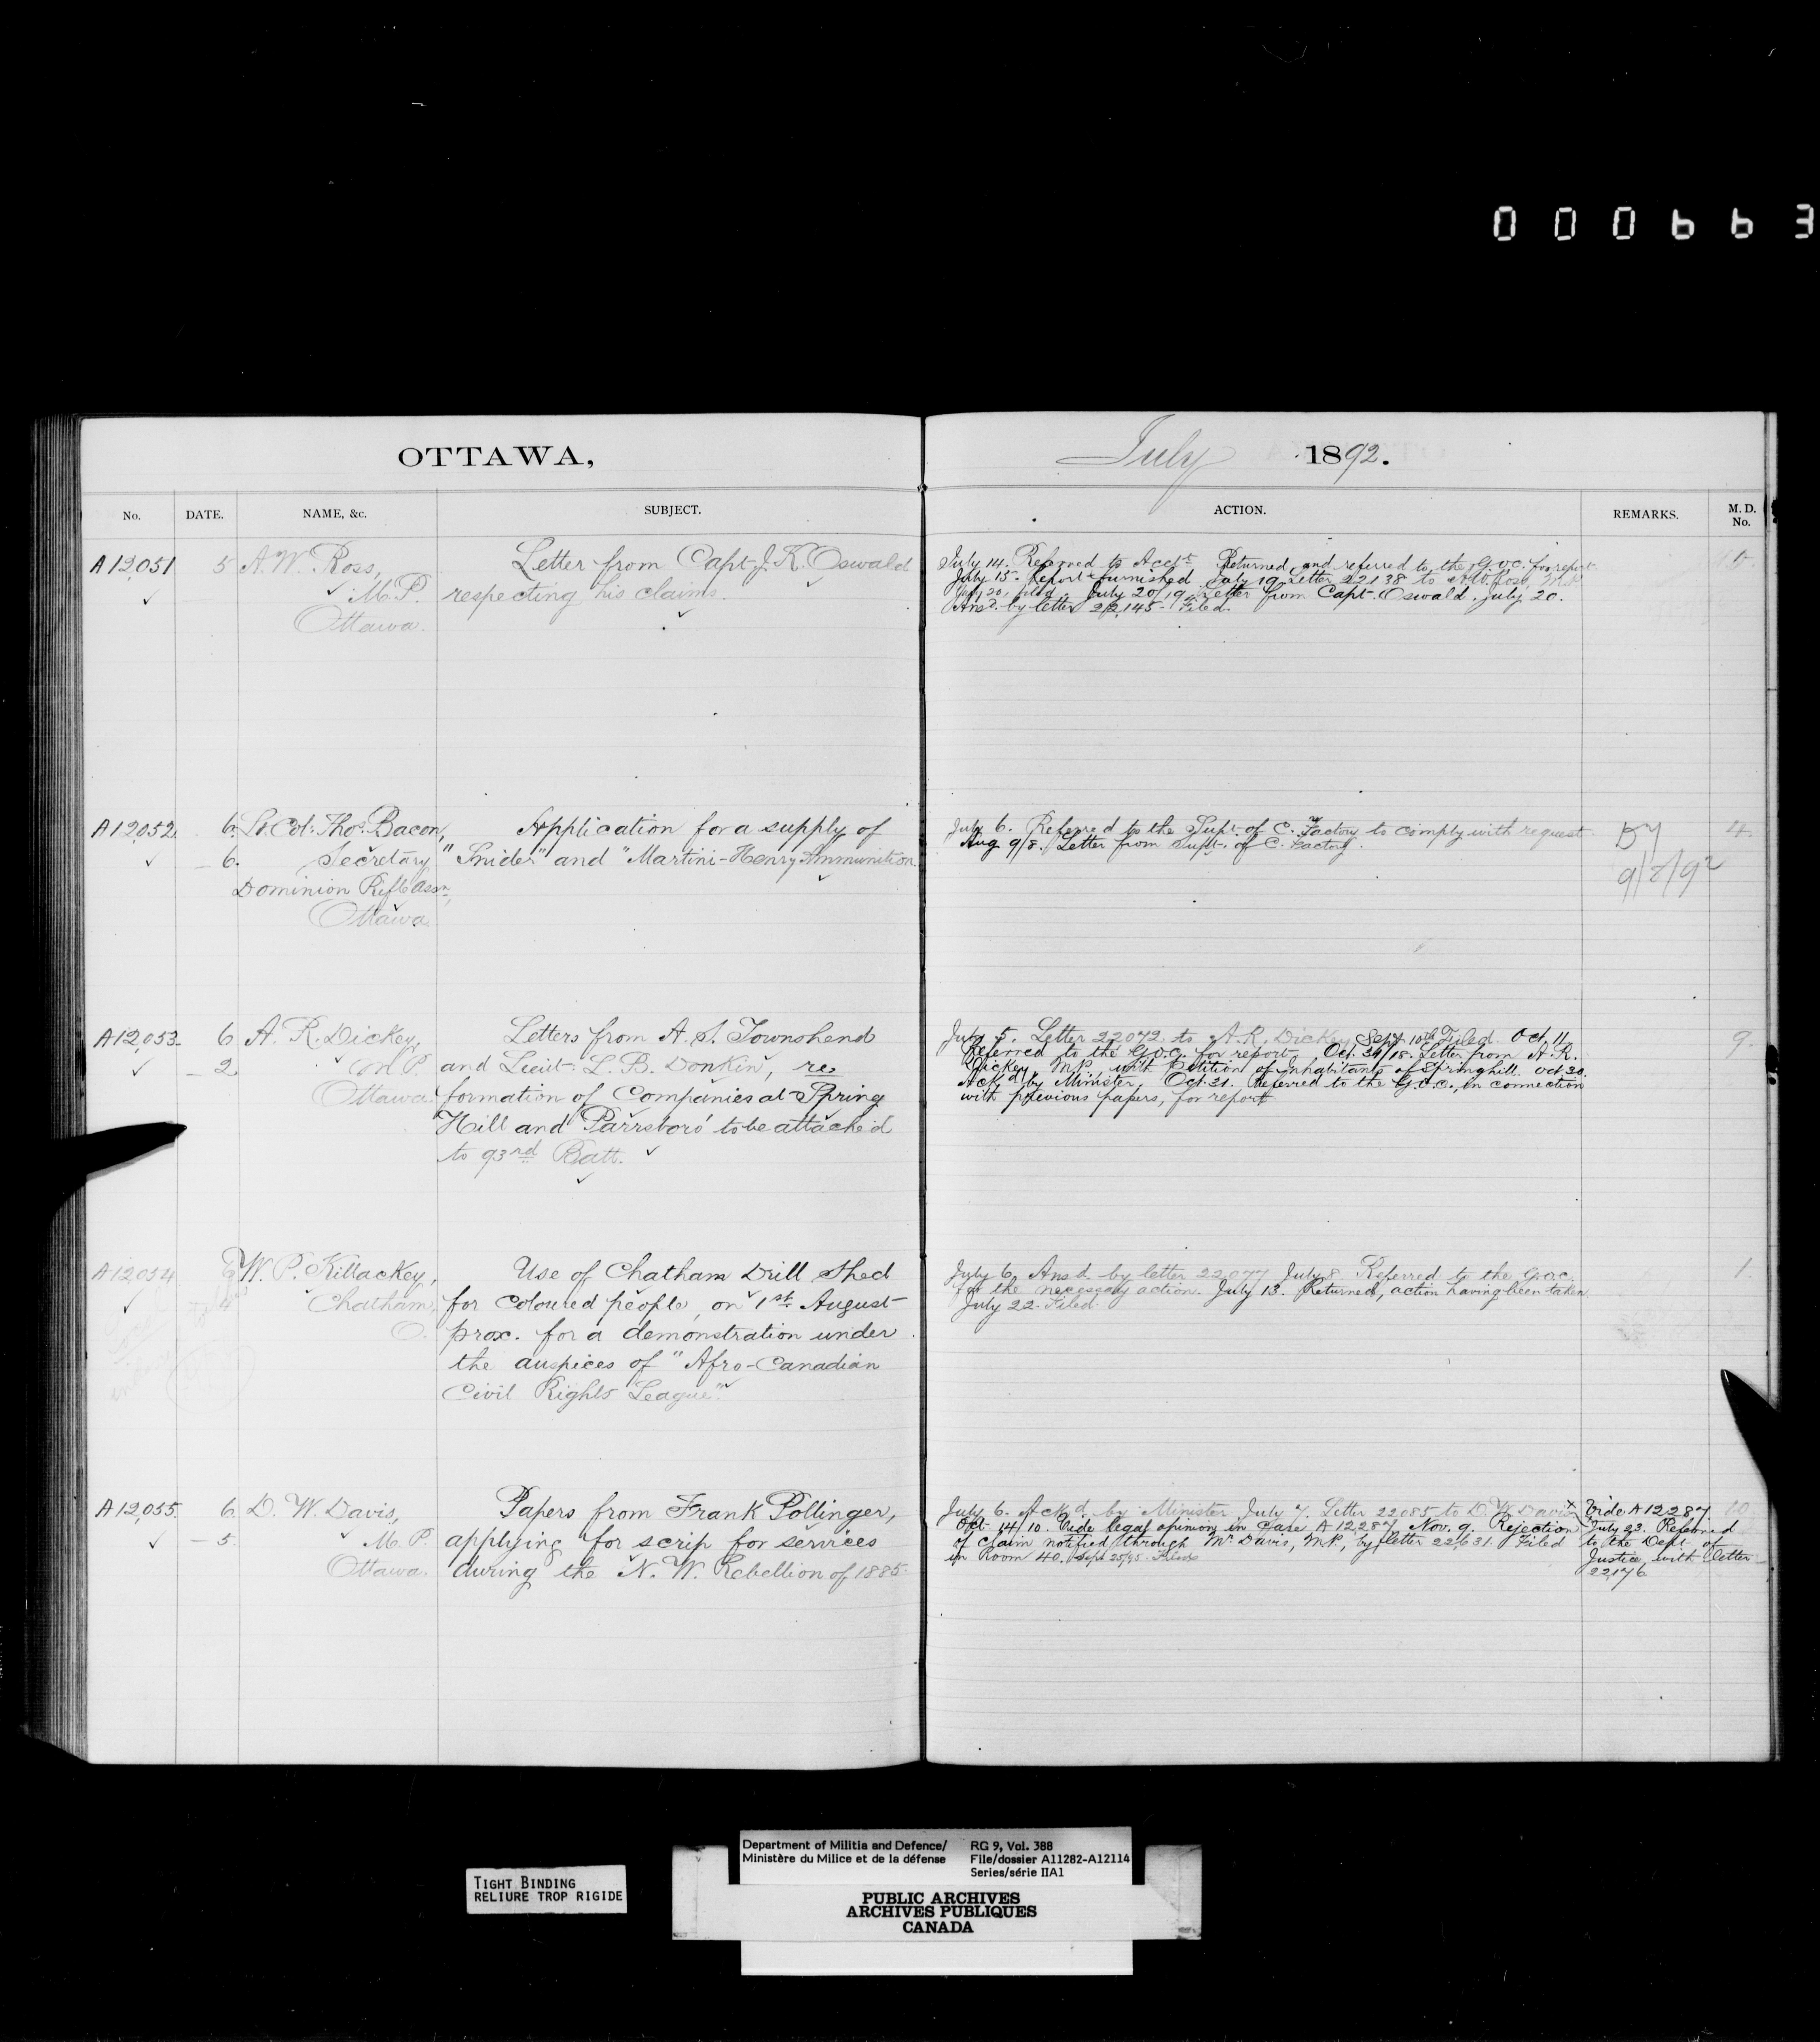 000663
OTTAWA,
July 1892.
No. DATE. NAME, &c. SUBJECT. ACTION. REMARKS. M. D. No.
A12,051 5 A. W. Ross,
M.P.
Ottawa.
Letter from Capt J. K. Oswald
respecting his claims.
July 14. Referred to Acct. Returned and referred to the G.O.C. for report
July 15. Report furnished July 19. Letter 22138 to A.W. Ross, M.P.
July 20, filed. July 20/19. Letter from Capt. Oswald. July 20.
Ansd. by letter 22,145. Filed.
10.
A12,052. 6. Lt. Col. Thos. Bacon,
6. Secretary
Dominion Rifle Assn.,
Ottawa
Application for a supply of
"Snider" and "Martini-Henry Ammunition
July 6. Referred to the Supt. of C. Factory to comply with request
Aug 9/8. Letter from Supt. of C. Factory.
BY
9/8/92
4.
A12,053 6 A. R. Dickey,
2 M.P.
Ottawa.
Letters from A. S. Townshend
and Lieut. L. B. Donkin, re
formation of Companies at Spring
Hill and Parrsboro' to be attached
to 93rd Batt.
July 5. Letter 22072 to A. R. Dickey Sept 10th Filed. Oct. 11.
Referred to the G.O.C. for report. Oct. 24/18. Letter from A. R.
Dickey, M.P., with Petition of inhabitants of Springhill. Oct 20.
Ack'd by Minister, Oct. 21. Referred to the G.O.C., in connection
with previous papers, for report
9.
A12,054 6 W. P. Killackey,
4 Chatham,
O.
Use of Chatham Drill Shed
for coloured people, on 1st August
prox. for a demonstration under
the auspices of "Afro-Canadian
Civil Rights League".
July 6. Ansd. by letter 22,077 July 8 Referred to the G.O.C.
for the necessary action. July 13. Returned, action having been taken
July 22. Filed.
1
A12,055. 6. D. W. Davis,
5. M.P.
Ottawa.
Papers from Frank Pollinger,
applying for scrip for services
during the N. W. Rebellion of 1885.
July 6. Ack'd. by Minister July 7. Letter 22085 to D. W. Davis
Oct 14/10. Vide legal opinion in Case A 12,287. Nov. 9. Rejection
of claim notified through Mr Davis, M.P., by letter 22,631. Filed
in Room 40. Sept 25/95. Filed
Vide A 12287.
July 23. Referred
to the Dept. of
Justice, with letter
22,176
10
TIGHT BINDING
RELIURE TROP RIGIDE
Department of Militia and Defence/
Ministère du Milice et de la défense
RG 9, Vol. 388
File/dossier A11282-A12114
Series/série IIA1
PUBLIC ARCHIVES
ARCHIVES PUBLIQUES
CANADA